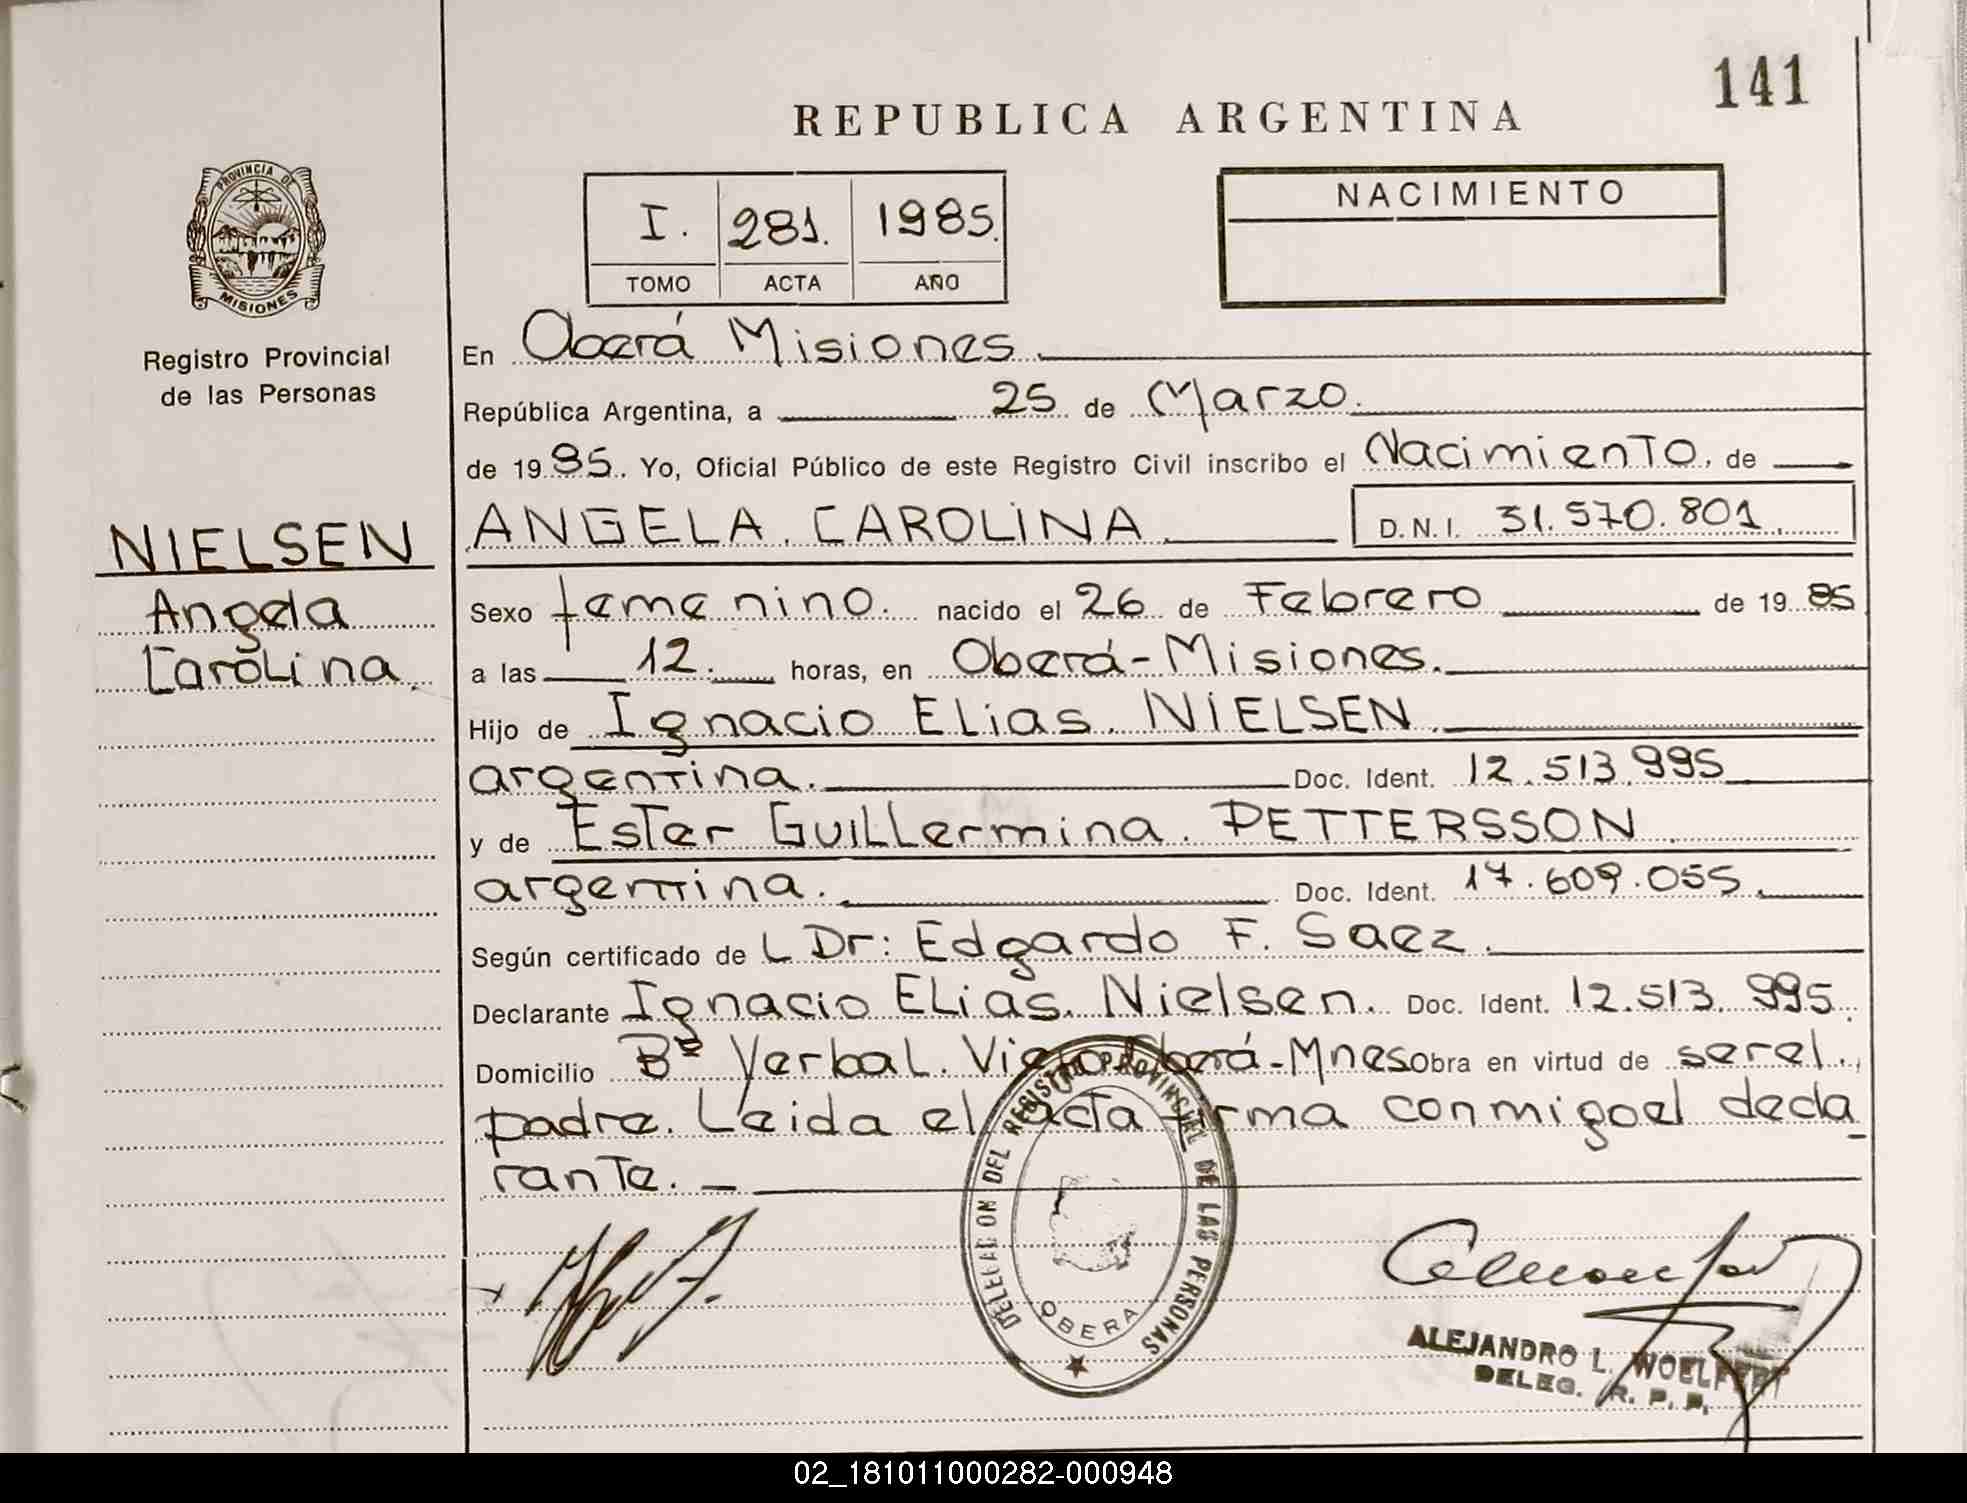 141
REPUBLICA ARGENTINA
PROVINCIA DE
MISIONES
Registro Provincial
de las Personas
NIELSEN
Angela
Carolina.
I. 281. 1985.
TOMO ACTA AÑO
NACIMIENTO
En Oberá Misiones
República Argentina, a 25 de Marzo.
de 19 85. Yo, Oficial Público de este Registro Civil inscribo el Nacimiento, de
ANGELA. CAROLINA D.N.I. 31.570.801.
Sexo femenino. nacido el 26 de Febrero de 19 85
a las 12. horas, en Oberá-Misiones.
Hijo de Ignacio Elias. NIELSEN
argentina. Doc. Ident. 12.513.995
y de Ester Guillermina. PETTERSSON
argentina. Doc. Ident. 17.609.055.
Según certificado de L Dr: Edgardo F. Saez.
Declarante Ignacio Elias. Nielsen. Doc. Ident. 12.513.995.
Domicilio Bº Yerbal. Viejo Oberá-Mnes Obra en virtud de ser el.
padre. Leida el acta firma conmigo el decla
rante.
DELEGACION DEL REGISTRO PROVINCIAL DE LAS PERSONAS
OBERA
ALEJANDRO L. WOELFERT
DELEG. R. P. P.
02_181011000282-000948